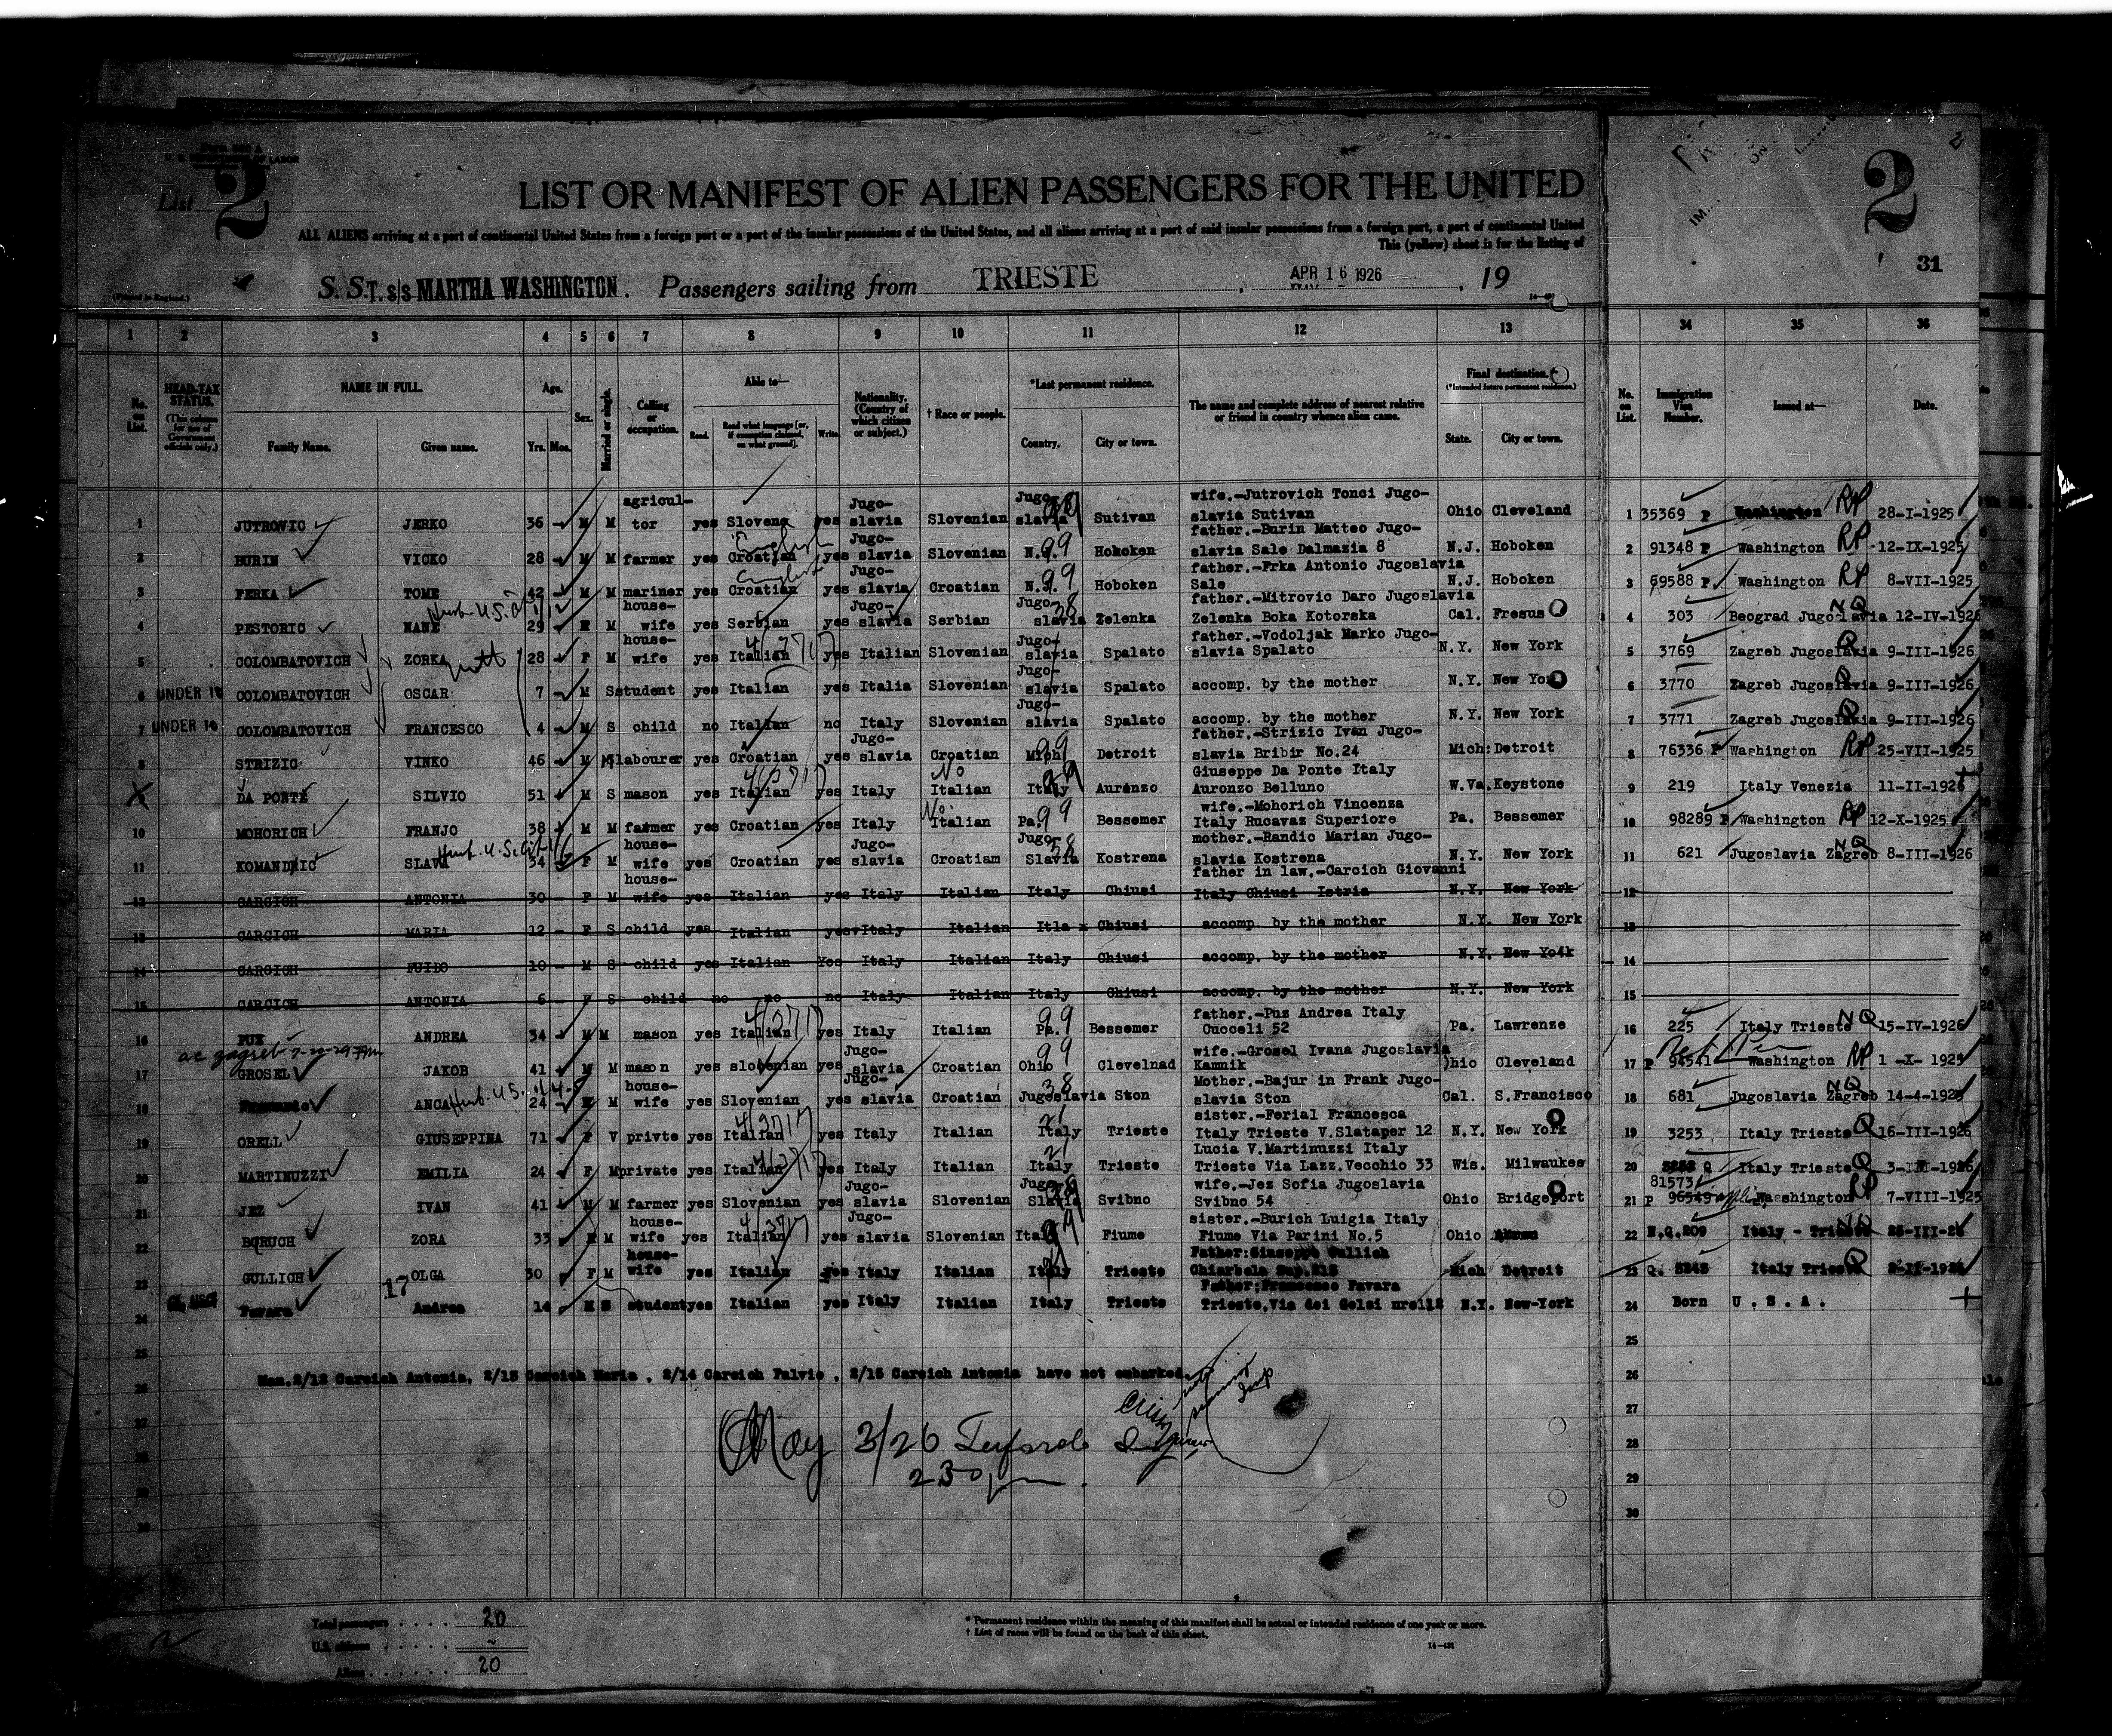 Form 500 A
U. S. DEPARTMENT OF LABOR
List 2
LIST OR MANIFEST OF ALIEN PASSENGERS FOR THE UNITED
ALL ALIENS arriving at a port of continental United States from a foreign port or a port of the insular possessions of the United States, and all aliens arriving at a port of said insular possessions from a foreign port, a port of continental United
This (yellow) sheet is for the listing of
2
2
31
(Printed in England.)
S. S. T. s/s MARTHA WASHINGTON. Passengers sailing from TRIESTE , APR 16 1926 , 19
1 2 3 4 5 6 7 8 9 10 11 12 13 34 35 36
No. on List. HEAD-TAX STATUS. (This column for use of Government officials only.) NAME IN FULL. Family Name. Given name. Age. Yrs. Mos. Sex. Married or single. Calling or occupation. Able to— Read. Read what language [or, if exemption claimed, on what ground]. Write. Nationality. (Country of which citizen or subject.) † Race or people. *Last permanent residence. Country. City or town. The name and complete address of nearest relative or friend in country whence alien came. Final destination. (*Intended future permanent residence.) State. City or town. No. on List. Immigration Visa Number. Issued at— Date.
1 JUTROVIC JERKO 36 - M M agricul-tor yes Slovene yes Jugo-slavia Slovenian Jugo-slavia Sutivan wife.-Jutrovich Tonci Jugo-slavia Sutivan Ohio Cleveland 1 35369 P Washington RP 28-I-1925
2 BURIN VICKO 28 - M M farmer yes Croatian English yes Jugo-slavia Slovenian N.J. 99 Hoboken father.-Burin Matteo Jugo-slavia Sale Dalmazia 8 N.J. Hoboken 2 91348 P Washington RP 12-IX-1925
3 FERKA TOME 42 - M M mariner yes Croatian English yes Jugo-slavia Croatian N.J. 99 Hoboken father.-Frka Antonio Jugoslavia Sale N.J. Hoboken 3 69588 P. Washington RP 8-VII-1925
4 PESTORIC NANE 29 - F M house-wife yes Serbian yes Jugo-slavia Serbian Jugo-slavia 38 Zelenka father.-Mitrovic Daro Jugoslavia Zelenka Boka Kotorska Cal. Fresus 4 303 Beograd Jugoslavia NQ 12-IV-1926
5 COLOMBATOVICH ZORKA 28 - F M house-wife yes Italian yes Italian Slovenian Jugo-slavia Spalato father.-Vodoljak Marko Jugo-slavia Spalato N.Y. New York 5 3769 Zagreb Jugoslavia Q 9-III-1926
6 UNDER 16 COLOMBATOVICH OSCAR 7 - M S student yes Italian yes Italia Slovenian Jugo-slavia Spalato accomp. by the mother N.Y. New York 6 3770 Zagreb Jugoslavia Q 9-III-1926
7 UNDER 16 COLOMBATOVICH FRANCESCO 4 - M S child no Italian no Italy Slovenian Jugo-slavia Spalato accomp. by the mother N.Y. New York 7 3771 Zagreb Jugoslavia Q 9-III-1926
8 STRIZIC VINKO 46 - M labourer yes Croatian yes Jugo-slavia Croatian Mich 99 Detroit father.-Strizic Ivan Jugo-slavia Bribir No.24 Mich: Detroit 8 76336 P Washington RP 25-VII-1925
X DA PONTE SILVIO 51 M S mason yes Italian yes Italy No Italian Italy Auronzo Giuseppe Da Ponte Italy Auronzo Belluno W.Va. Keystone 9 219 Italy Venezia 11-II-1926
10 MOHORICH FRANJO 38 M M farmer yes Croatian yes Italy No Italian Pa. 99 Bessemer wife.-Mohorich Vincenza Italy Rucavaz Superiore Pa. Bessemer 10 98289 P Washington RP 12-X-1925
11 KOMANDIC SLAVA 34 F M house-wife yes Croatian yes Jugo-slavia Croatiam Jugo-Slavia 38 Kostrena mother.-Randic Marian Jugo-slavia Kostrena N.Y. New York 11 621 Jugoslavia Zagreb NQ 8-III-1926
12 CARCICH ANTONIA 30 - F M house-wife yes Italian yes Italy Italian Italy Chiusi father in law.-Carcich Giovanni Italy Chiusi Istria N.Y. New York 12
13 CARCICH MARIA 12 - F S child yes Italian yes Italy Italian Itla x Chiusi accomp. by the mother N.Y. New York 13
14 CARCICH FUIDO 10 - M S child yes Italian Yes Italy Italian Italy Chiusi accomp. by the mother N.Y. New Yo4k 14
15 CARCICH ANTONIA 6 - F S child no no no Italy Italian Italy Chiusi accomp. by the mother N.Y. New York 15
16 PUX ANDREA 34 M M mason yes Italian yes Italy Italian Pa. 99 Bessemer father.-Pus Andrea Italy Cucceli 52 Pa. Lawrenze 16 225 Italy Trieste NQ 15-IV-1926
17 GROSEL JAKOB 41 M M mason yes slovenian yes Jugo-slavia Croatian Ohio 99 Clevelnad wife.-Grosel Ivana Jugoslavia Kamnik Ohio Cleveland 17 P 94541 Washington RP 1 -X- 1925
18 ANCA 24 - F M house-wife yes Slovenian yes Jugo-slavia Croatian Jugoslavia 38 Ston Mother.-Bajur in Frank Jugo-slavia Ston Cal. S.Francisco 18 681 Jugoslavia Zagreb NQ 14-4-1925
19 ORELL GIUSEPPINA 71 F V privte yes Italian yes Italy Italian Italy 21 Trieste sister.-Ferial Francesca Italy Trieste V.Slataper 12 N.Y. New York 19 3253 Italy Trieste Q 16-III-1926
20 MARTINUZZI EMILIA 24 F M private yes Italian yes Italy Italian Italy 21 Trieste Lucia V.Martinuzzi Italy Trieste Via Lazz.Vecchio 33 Wis. Milwaukee 20 Italy Trieste Q
21 JEZ IVAN 41 M M farmer yes Slovenian yes Jugo-slavia Slovenian Jugo-Slavia Svibno wife.-Jez Sofia Jugoslavia Svibno 54 Ohio Bridgeport 21 P 81573 96549 Washington RP 7-VIII-1925
22 BORUCH ZORA 33 F M house-wife yes Italian yes Jugo-slavia Slovenian Italy Fiume sister.-Burich Luigia Italy Fiume Via Parini No.5 Ohio 22 N.Q.209 Italy - Trieste NQ
23 GULLICH OLGA 30 F M house-wife yes Italian yes Italy Italian Italy Trieste Father:Giuseppe Gullich Mich Detroit 23 Q. Italy Trieste Q
24 Favara Andrea 14 17 M S student yes Italian yes Italy Italian Italy Trieste Father:Francesco Favara Trieste,Via dei Gelsi N.Y. New-York 24 Born U.S.A.
25
26
27
28
29
30
Man.2/12 Carcich Antonia, 2/13 Carcich Maria , 2/14 Carcich Fulvio , 2/15 Carcich Antonia have not embarked
May 3/26
2 30 pm.
Total passengers . . . . . 20
U.S. citizens . . . . . . -
Aliens . . . . . . 20
* Permanent residence within the meaning of this manifest shall be actual or intended residence of one year or more.
† List of races will be found on the back of this sheet.
14-421